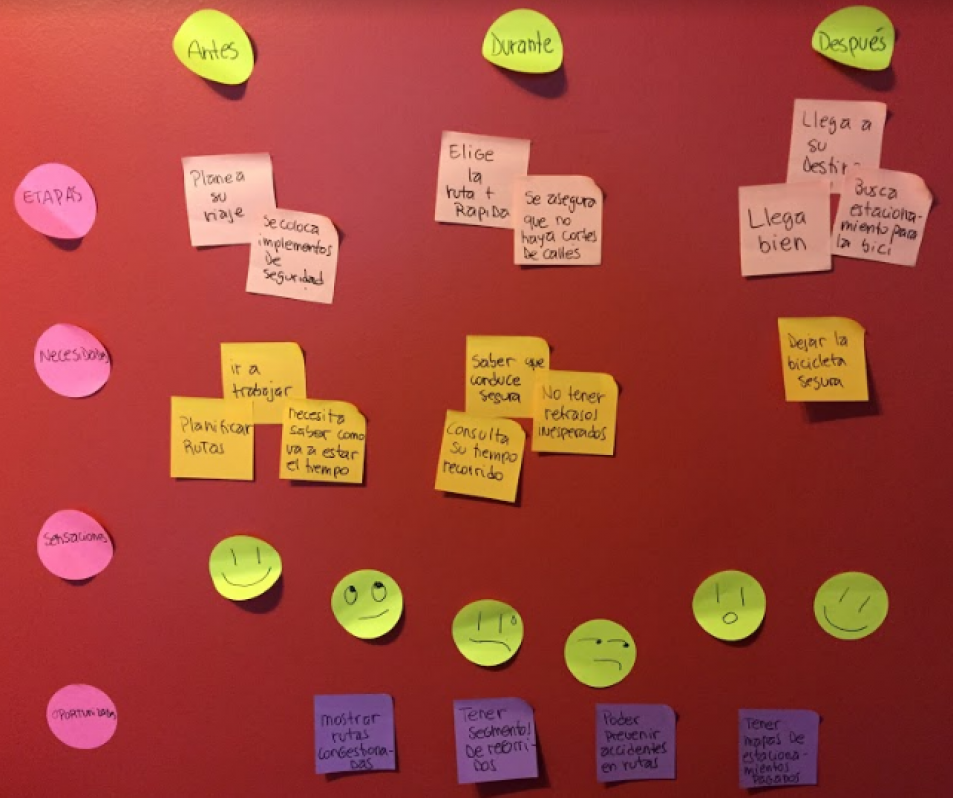 Antes
Durante
Después
ETAPAS
Planea
su
viaje
Se coloca
implementos
De
seguridad
Elige
la
ruta +
Rapida
Se asegura
que no
haya cortes
De calles
Llega a
su
Destin
Llega
bien
Busca
estaciona-
miento para
la bici
Necesidades
ir a
trabajar
Planificar
Rutas
necesita
saber como
va a estar
el tiempo
Saber que
conduce
segura
No tener
retrasos
inesperados
Consulta
su tiempo
recorrido
Dejar la
bicicleta
segura
Sensaciones
OPORTUNIDADES
mostrar
rutas
congestiona-
das
Tener
segmentos
De recorri-
dos
Poder
Prevenir
accidentes
en rutas
Tener
mapas de
estaciona-
mientos
pagados